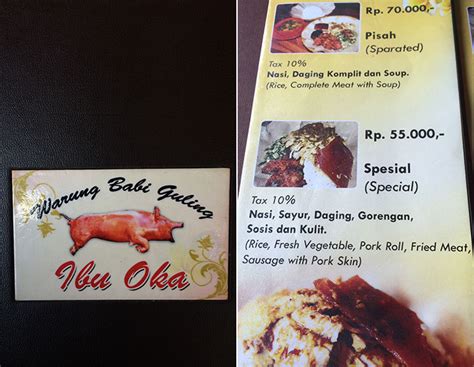 Warung Babi Guling
Ibu Oka
Rp. 70.000,-
Pisah
(Sparated)
Tax 10%
Nasi, Daging Komplit dan Soup.
(Rice, Complete Meat with Soup)
Rp. 55.000,-
Spesial
(Special)
Tax 10%
Nasi, Sayur, Daging, Gorengan,
Sosis dan Kulit.
(Rice, Fresh Vegetable, Pork Roll, Fried Meat,
Sausage with Pork Skin)